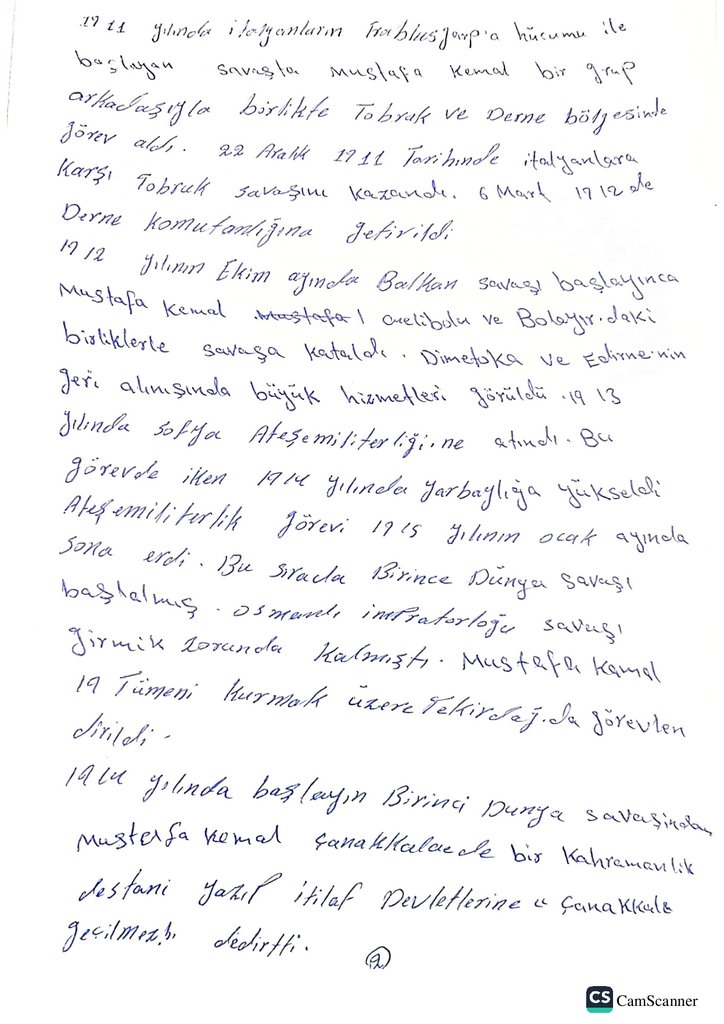 1911 yılında italyanların Trablusgarp'a hücumu ile
başlayan savaşla Mustafa Kemal bir grup
arkadaşıyla birlikte Tobruk ve Derne bölgesinde
görev aldı. 22 Aralık 1911 Tarihinde italyanlara
Karşı Tobruk savaşını kazandı. 6 Mart 1912 de
Derne Komutanlığına getirildi
1912 yılının Ekim ayında Balkan savaşı başlayınca
Mustafa Kemal Mustafa Gelibolu ve Bolayır.daki
birliklerle savaşa kataldı. Dimetoka ve Edirne'nin
geri alınışında büyük hizmetleri görüldü. 1913
yılında Sofya Ateşemiliterliği.ne atındı. Bu
görevde iken 1914 yılında yarbaylığa yükseldi
Ateşemiliterlik görevi 1915 yılının ocak ayında
sona erdi. Bu sırada Birince Dünya savaşı
başlalmış. osmanlı impratorloğu savaşı
girmik zorunda kalmıştı. Mustafa Kamal
19 Tümeni kurmak üzere Tekirdağ.da görevlen
dirildi.
1914 yılında başlayın Birinci Dunya savaşından
Musterfa Kemal çanakkalaede bir Kahramanlik
destani yazıp itilaf Devletlerine " çanakkale
geçilmez" dedirtti.
2
CS CamScanner